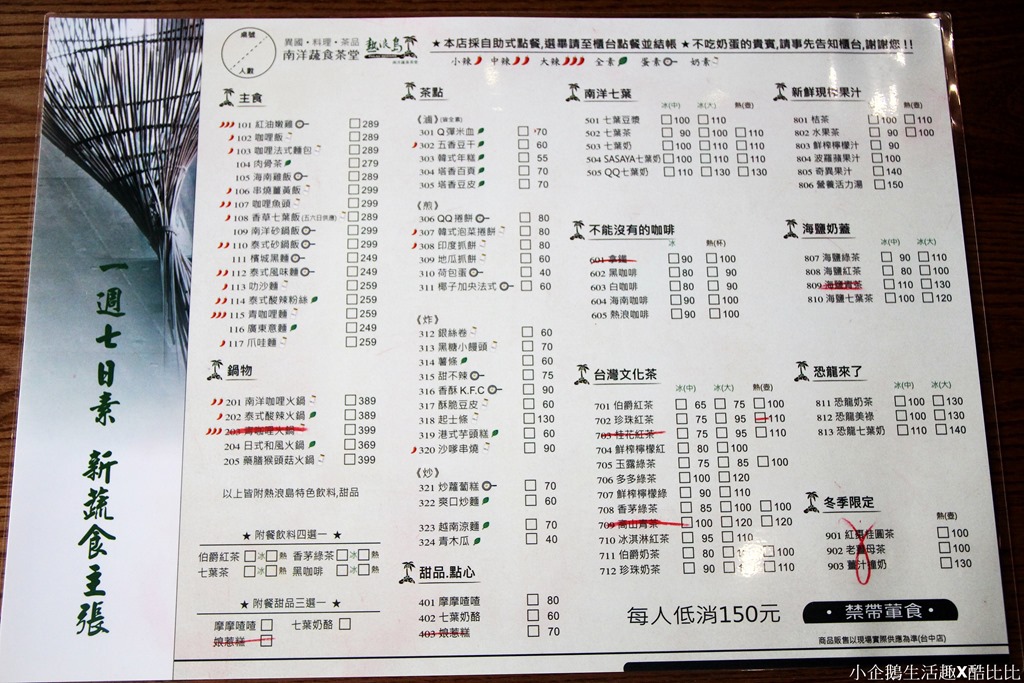 一週七日素 新蔬食主張
桌號
人數
異國・料理・茶品
南洋蔬食茶堂
熱浪島
南洋蔬食茶堂
★本店採自助式點餐,選畢請至櫃台點餐並結帳 ★不吃奶蛋的貴賓,請事先告知櫃台,謝謝您!!
小辣 中辣 大辣 全素 蛋素 奶素
主食
101 紅油嫩雞 289
102 咖哩飯 289
103 咖哩法式麵包 289
104 肉骨茶 279
105 海南雞飯 289
106 串燒薑黃飯 299
107 咖哩魚頭 299
108 香草七葉飯(五六日供應) 289
109 南洋砂鍋飯 299
110 泰式砂鍋飯 299
111 檳城黑麵 249
112 泰式風味麵 249
113 叻沙麵 259
114 泰式酸辣粉絲 259
115 青咖哩麵 259
116 廣東意麵 249
117 爪哇麵 259
鍋物
201 南洋咖哩火鍋 389
202 泰式酸辣火鍋 389
203 青咖哩火鍋 399
204 日式和風火鍋 369
205 藥膳猴頭菇火鍋 399
以上皆附熱浪島特色飲料,甜品
★ 附餐飲料四選一 ★
伯爵紅茶 冰 熱 香茅綠茶 冰 熱
七葉茶 冰 熱 黑咖啡 冰 熱
★ 附餐甜品三選一 ★
摩摩喳喳 七葉奶酪
娘惹糕
茶點
《滷》(皆全素)
301 Q彈米血 70
302 五香豆干 60
303 韓式年糕 55
304 塔香百頁 70
305 塔香豆皮 70
《煎》
306 QQ捲餅 80
307 韓式泡菜捲餅 80
308 印度抓餅 80
309 地瓜抓餅 60
310 荷包蛋 40
311 椰子加央法式 60
《炸》
312 銀絲卷 60
313 黑糖小饅頭 70
314 薯條 60
315 甜不辣 75
316 香酥K.F.C 90
317 酥脆豆皮 60
318 起士條 130
319 港式芋頭糕 60
320 沙嗲串燒 90
《炒》
321 炒蘿蔔糕 70
322 爽口炒麵 60
323 越南涼麵 70
324 青木瓜 40
甜品.點心
401 摩摩喳喳 80
402 七葉奶酪 60
403 娘惹糕 70
南洋七葉
冰(中) 冰(大) 熱(壺)
501 七葉豆漿 100 110
502 七葉茶 90 100 110
503 七葉奶 100 110 110
504 SASAYA七葉奶 100 110 110
505 QQ七葉奶 110 130 130
不能沒有的咖啡
冰 熱(杯)
601 拿鐵 90 100
602 黑咖啡 80 90
603 白咖啡 80 90
604 海南咖啡 90 100
605 熱浪咖啡 90 100
台灣文化茶
冰(中) 冰(大) 熱(壺)
701 伯爵紅茶 65 75 100
702 珍珠紅茶 75 95 110
703 桂花紅茶 75 95 110
704 鮮榨檸檬紅 80 100
705 玉露綠茶 75 85 100
706 多多綠茶 100 120
707 鮮榨檸檬綠 90 110
708 香茅綠茶 85 100 100
709 高山青茶 100 120 120
710 冰淇淋紅茶 95 110
711 伯爵奶茶 80 100
712 珍珠奶茶 90 110 100
新鮮現榨果汁
熱(壺)
801 桔茶 100 110
802 水果茶 90 100
803 鮮榨檸檬汁 90
804 波羅蘋果汁 100
805 奇異果汁 140
806 營養活力湯 150
海鹽奶蓋
冰(中) 冰(大)
807 海鹽綠茶 90 110
808 海鹽紅茶 80 100
809 海鹽青茶 110 130
810 海鹽七葉茶 100 120
恐龍來了
冰(中) 冰(大)
811 恐龍奶茶 100 130
812 恐龍美祿 100 130
813 恐龍七葉奶 110 140
冬季限定
熱(壺)
901 紅棗桂圓茶 100
902 老薑母茶 100
903 薑汁撞奶 130
每人低消150元
・禁帶葷食・
商品販售以現場實際供應為準(台中店)
小企鵝生活趣X酷比比